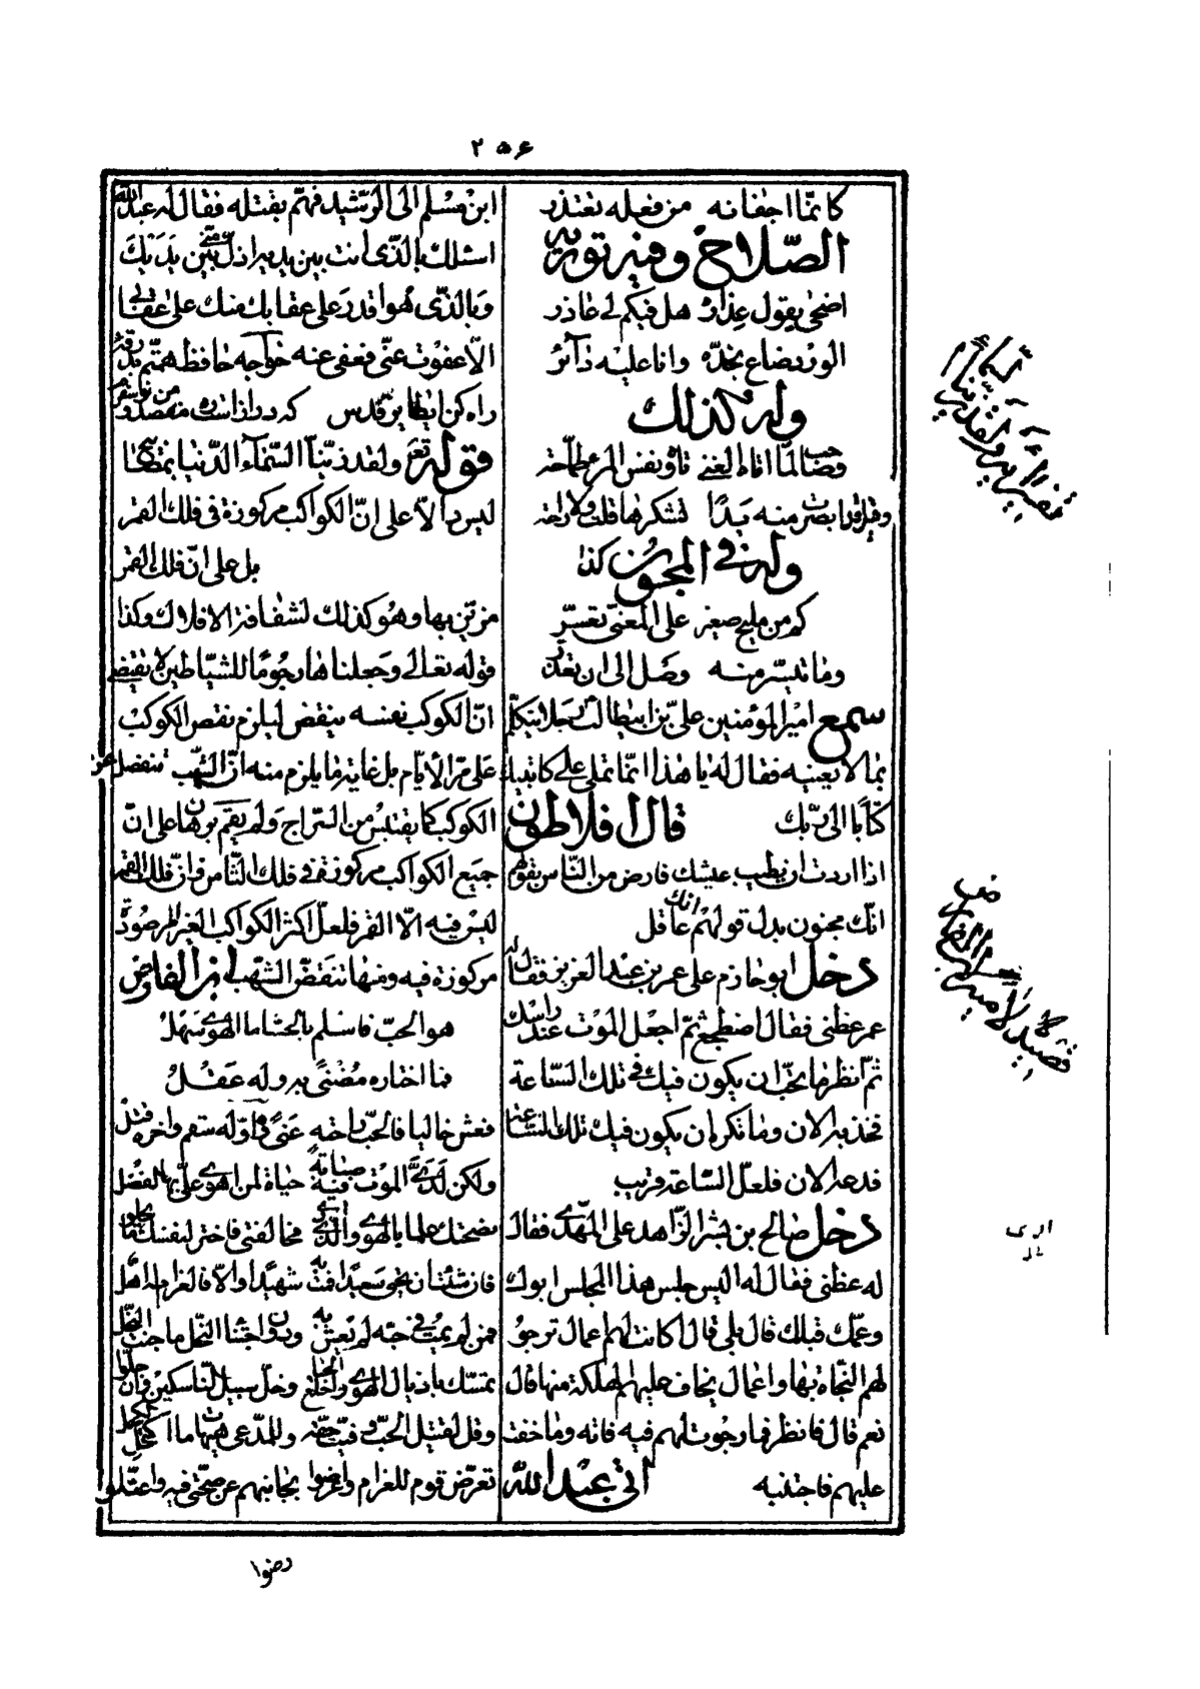 ۲۵۶
كانما اجفانه من فعله تعتذر
الصلاح وفيه تورية
اضحى يقول عذاره هل فيكم لي عاذر
الورد ضاع بخده وانا عليه دآئر
وله كذلك
وصاحب لما اتاه الغنى تاه ونفس المرء طماحة
وقيل هل ابصرت منه يدًا تشكرها قلت ولا راحة
وله في المجون كذا
كم من مليح صغير على المعنى تعسّر
وما تيسّر منه وصل الى ان تعذر
سمع امير المؤمنين على بن ابيطالب رجلا يتكلم
بما لا يعنيه فقال له يا هذا انما تملى على كاتبيك
كتابا الى ربك قال افلاطون
اذا اردت ان يطيب عيشك فارض من الناس بقولهم
انك مجنون بدل قولهم انك عاقل
دخل ابو حازم على عمر بن عبد العزيز فقال له
عمر عظنى فقال اضطجع ثم اجعل الموت عند راسك
ثم انظر ما تحب ان يكون فيك في تلك الساعة
فخذ به الان وما تكره ان يكون فيك تلك الساعة
فدعه الان فلعل الساعة قريب
دخل صالح بن بشر الزاهد على المهدى فقال
له عظنى فقال له اليس جلس هذا المجلس ابوك
وعمك قبلك قال بلى قال اكانت لهم اعمال ترجو
لهم النجاة بها واعمال يخاف عليهم الهلكة منها قال
نعم قال فانظر فما رجوت لهم فيه فاته وما خفت
عليهم فاجتنبه اتى عبد الله
ابن مسلم الى الرشيد فهم بقتله فقال له عبد الله
اسئلك بالذى انت بين يديه اذل منى بين يديك
وبالذى هو اقدر على عقابك منك على عقابى
الا عفوت عنى فعفى عنه خواجه حافظ همتم بدرقه
راه كن ايطاير قدس كه درازاست ره مقصد و من نو سفرم
قوله تعم ولقد زينا السمآء الدنيا بمصابيح
ليس دالا على ان الكواكب مركوزة فى فلك القمر
بل على ان فلك القمر
مزين بها وهو كذلك لشفافة الافلاك وكذا
قوله تعالى وجعلناها رجوما للشياطين لا يقتضى
ان الكوكب نفسه ينقض ليلزم نقص الكوكب
على مر الايام بل غاية ما يلزم منه ان الشهب تنفصل عن
الكوكب كما يقتبس من السراج ولم يقم برهان على ان
جميع الكواكب مركوزة فى فلك الثامن وان فلك القمر
ليس فيه الا القمر فلعل اكثر الكواكب الغير المرصودة
مركوزة فيه ومنها تنقض الشهب ابن الفارض
هو الحب فاسلم بالحشا ما الهوى سهل
فما اختاره مضنى به وله عقل
فعش خاليا فالحب راحته عنى واوله سقم واخره قتل
ولكن لدى الموت فيه صبابة حياة لمن اهوى على بها الفضل
نصحتك علما بالهوى والذي ارى مخالفتى فاختر لنفسك ما يحلو
فان شئت ان تحيى سعيدا فمت به شهيدا والا فالغرام له اهل
فمن لم يمت في حبه لم يعش به ودون اجتنا النحل ما جنت النحل
تمسك باذيال الهوى واخلع الحيا وخل سبيل الناسكين وان جلوا
وقل لقتيل الحب وفيت حقه وللمدعى هيهات ما الكحل الكحل
تعرض قوم للغرام واعرضوا بجانبهم عن صحتى فيه واعتلوا
رضوا